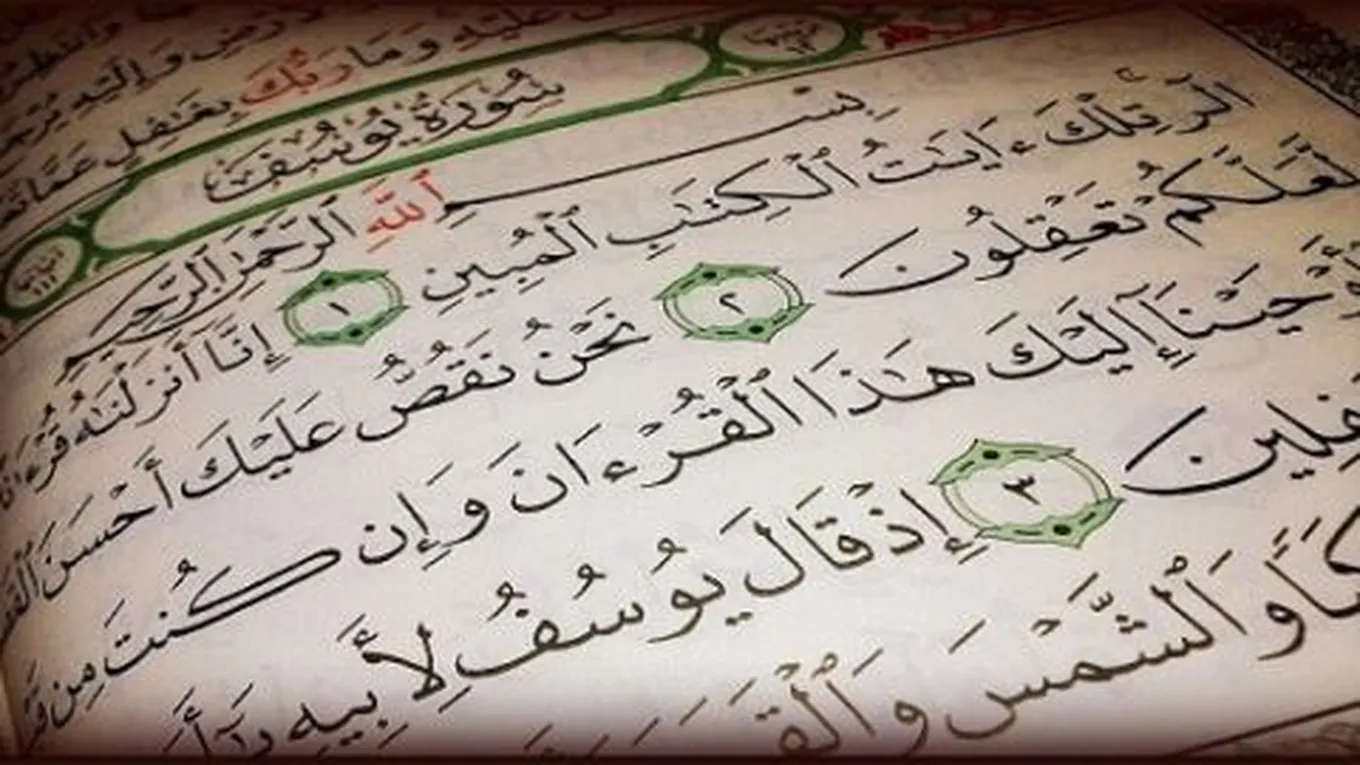 وَإِلَيْهِ
عَلَيْهِ وَمَا رَبُّكَ بِغَٰفِلٍ عَمَّا
سُورَةُ يُوسُفَ
بِسْمِ ٱللَّهِ ٱلرَّحْمَٰنِ ٱلرَّحِيمِ
الٓر تِلْكَ ءَايَٰتُ ٱلْكِتَٰبِ ٱلْمُبِينِ ١ إِنَّآ أَنزَلْنَٰهُ
لَّعَلَّكُمْ تَعْقِلُونَ ٢ نَحْنُ نَقُصُّ عَلَيْكَ أَحْسَنَ
أَوْحَيْنَآ إِلَيْكَ هَٰذَا ٱلْقُرْءَانَ وَإِن كُنتَ مِن
٣ إِذْ قَالَ يُوسُفُ لِأَبِيهِ
وَٱلشَّمْسَ